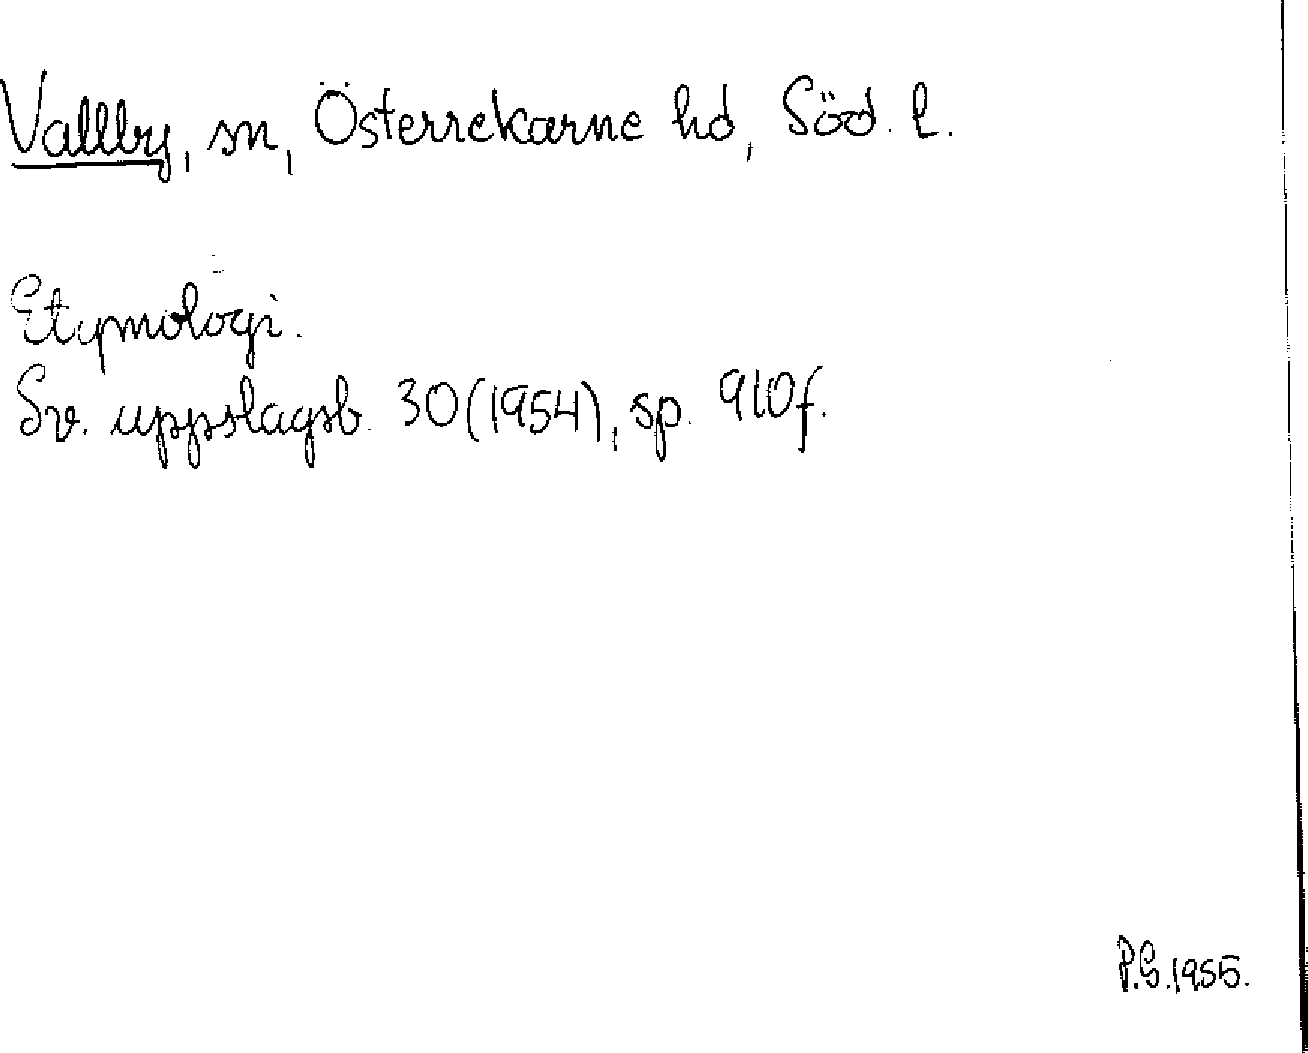 Vallby, sn, Österrekarne hd, Söd. l.
Etymologi.
Sv. uppslagsb. 30(1954), sp. 910f.
P.G.1955.